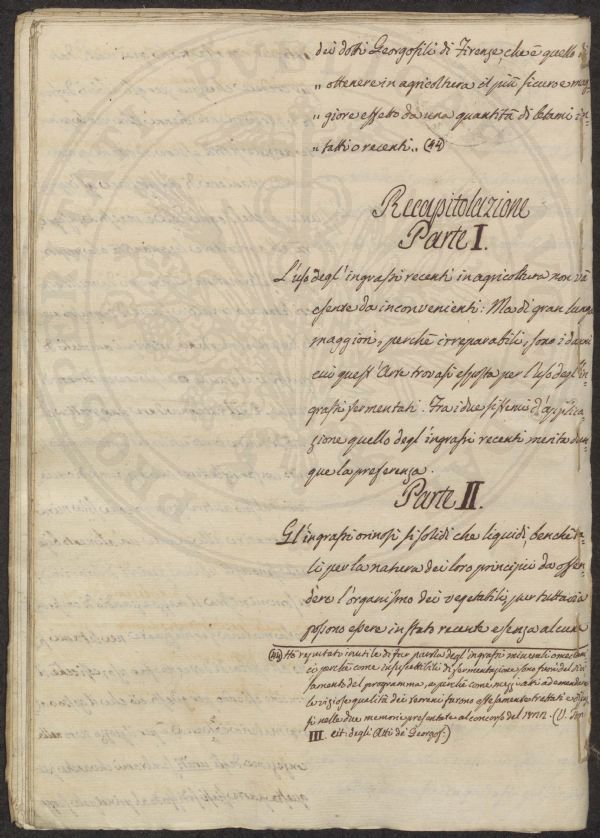 dei dotti Georgofili di Firenze, che è quello di
„ ottenere in agricoltura il più sicuro e mag
„ giore effetto da una quantità di letami in„
„ tatti o recenti „ (44)
Recapitolazione
Parte I.
L'uso degl'ingrassi recenti in agricoltura non và
esente da inconvenienti: Ma di gran lunga
maggiori, perchè irreparabili, sono i danni
cui quest'Arte trovasi esposta per l'uso degl'in
grassi fermentati. Fra i due sistemi d'applica
zione quello degl'ingrassi recenti merita dun
que la preferenza.
Parte II.
Gl'ingrassi orinosi sì solidi che liquidi, benchè ta„
li per la natura dei loro principii da offen
dere l'organismo dei vegetabili, pur tuttavia
possono essere in stato recente e senza alcuna
(44) Ho reputato inutile di far parola degl'ingrassi minerali o meccani
ci perchè come insuscettibili di fermentazione sono fuori del
samento del programma, e perchè come mezzi atti ad emendare
le viziose qualità dei terreni furono estesamente trattati e
si nelle due memorie presentate al concorso del (V. Tom
III. cit: degli Atti de' Georgof:)